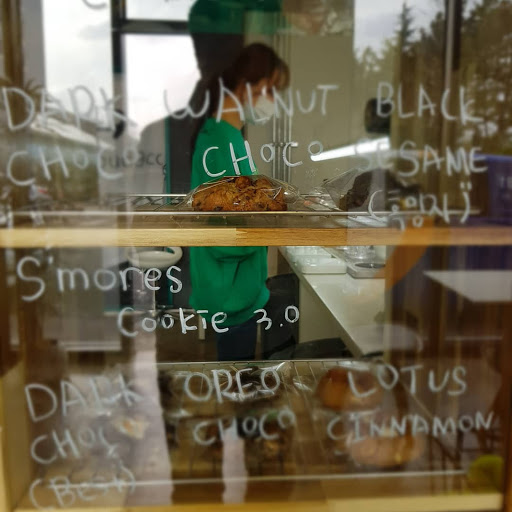 DARK WALNUT BLACK
CHOC CHOCO SESAME
S'mores
COOKIE 3.0
DARK OREO LOTUS
CHOC CHOCO CINNAMON
(Best)